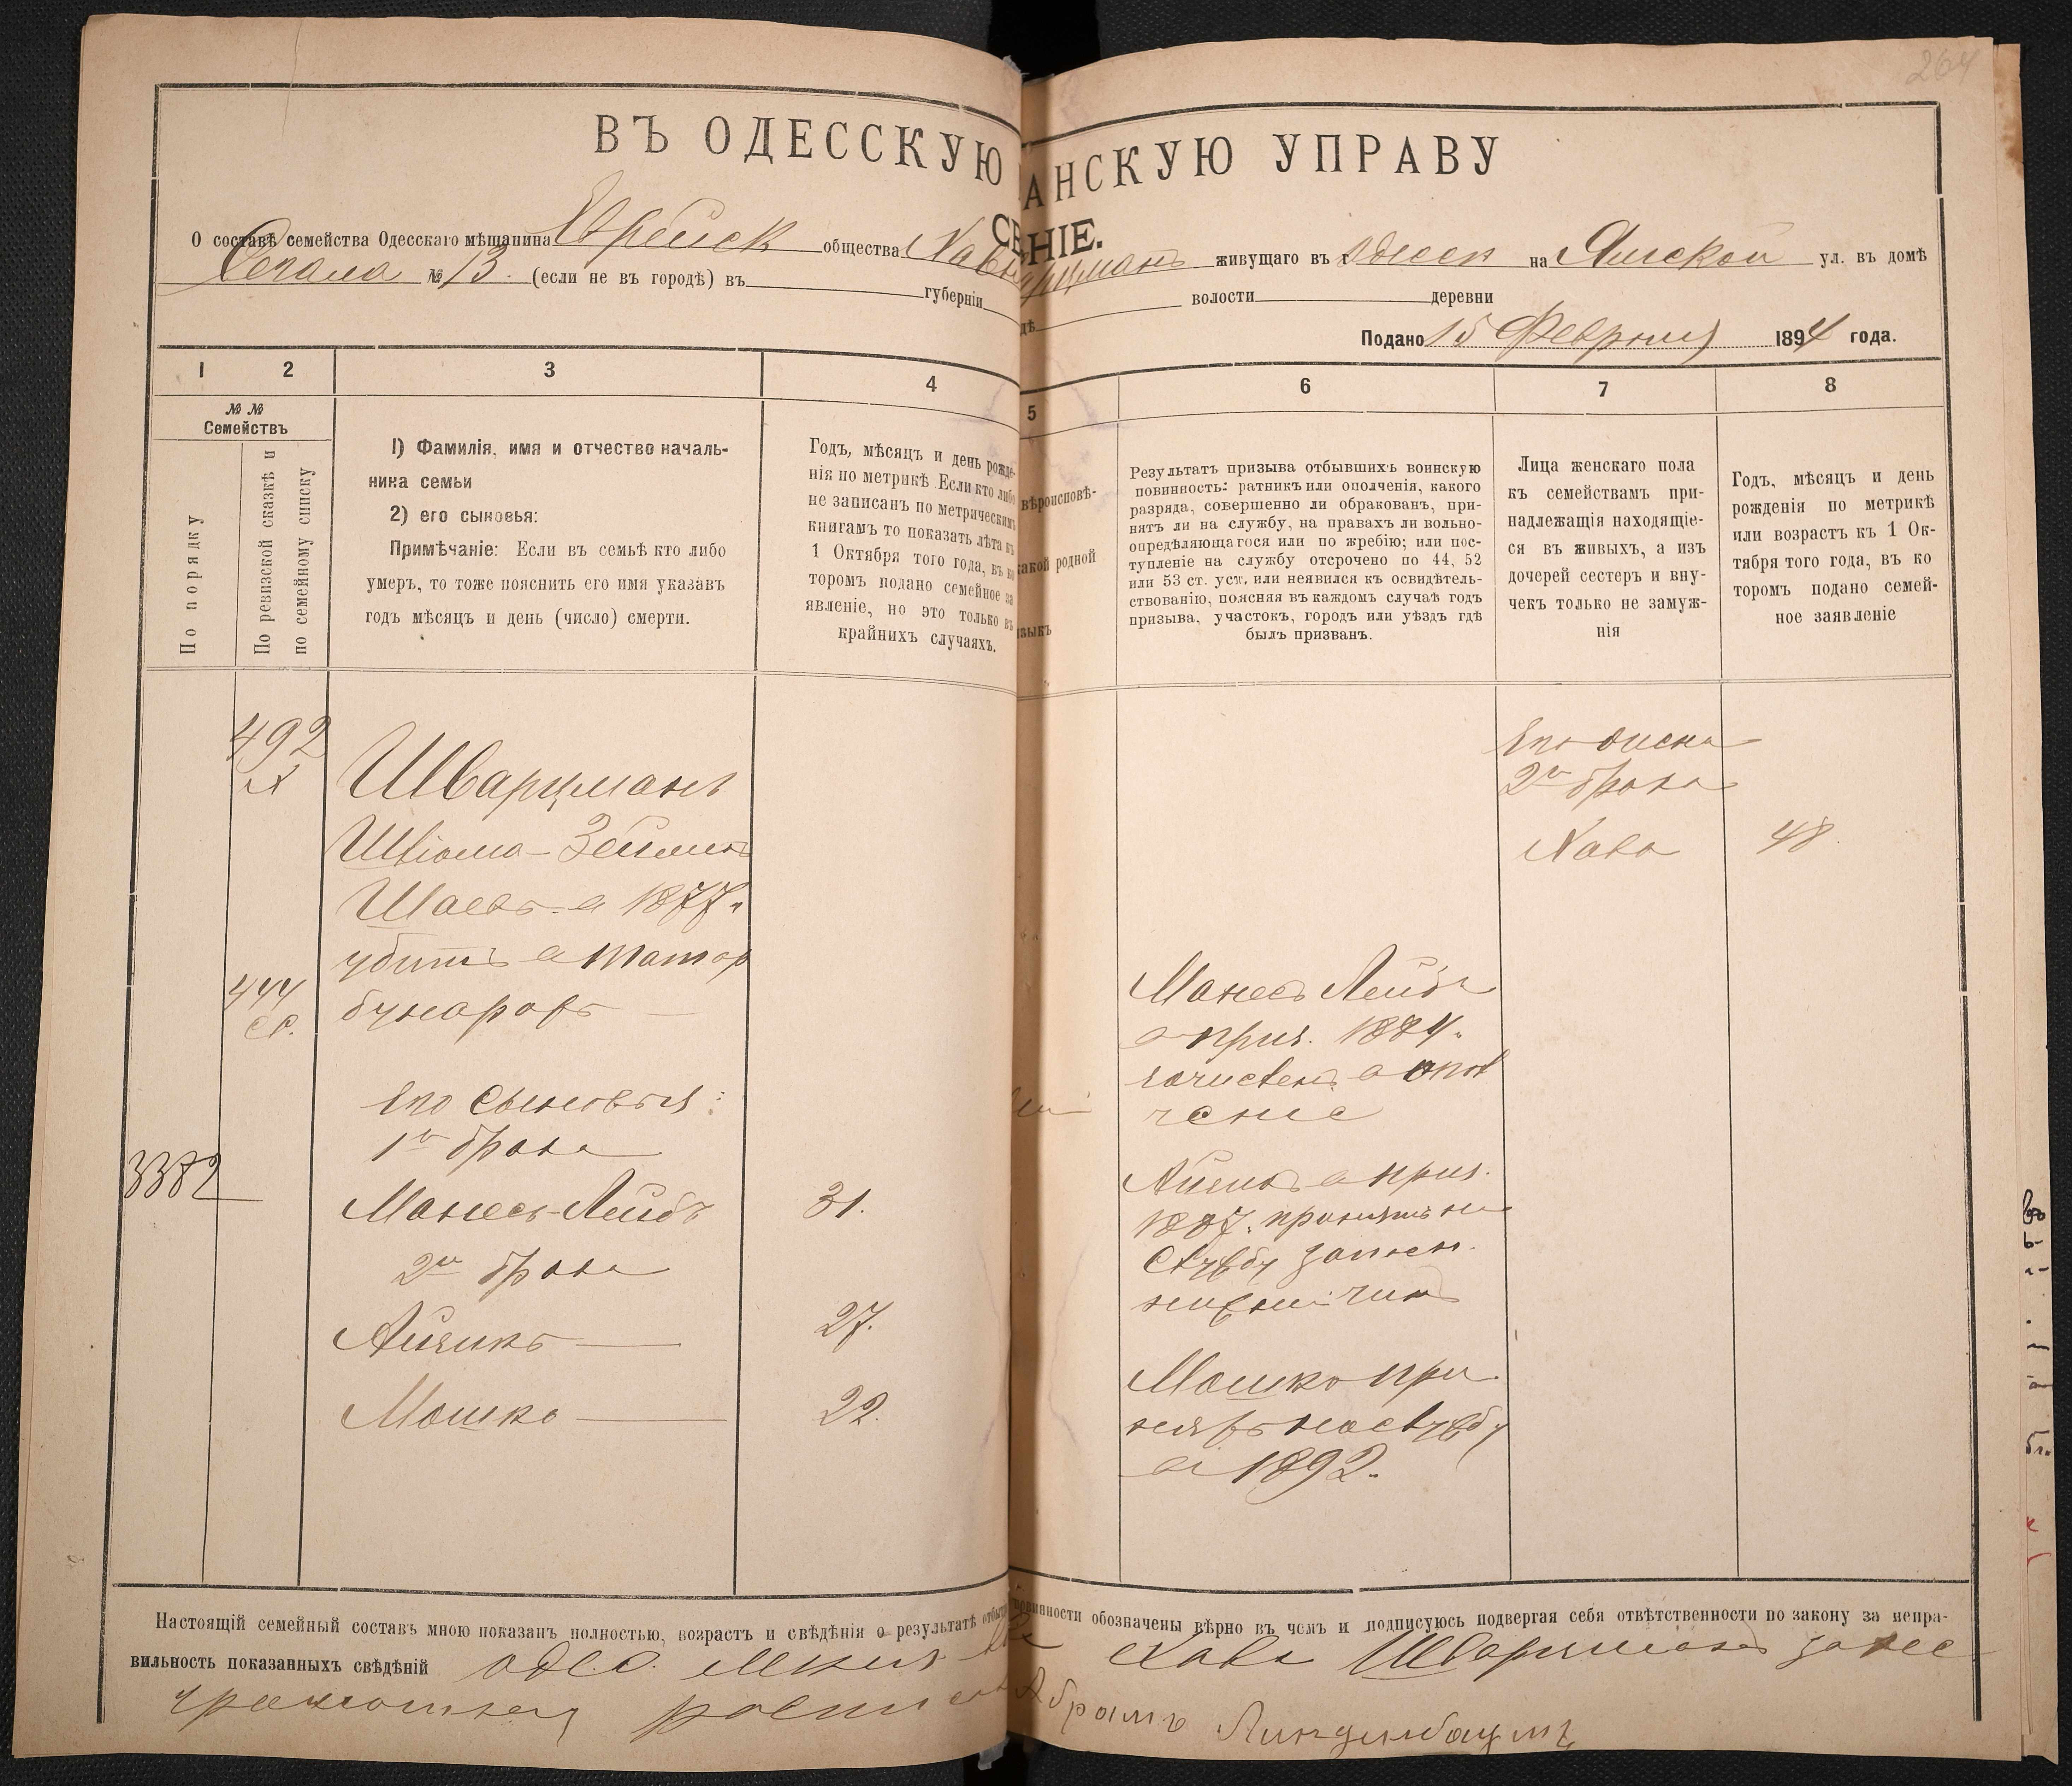 264
ВЪ ОДЕССКУЮ АНСКУЮ УПРАВУ
СЕ НІЕ.
О составѣ семейства Одесскаго мѣщанина Еврейск общества Хавы Шварцманъ живущаго въ г Одессѣ на Ямской ул. въ домѣ
№ 13. (если не въ городѣ) въ губерніи дѣ волости деревни
Подано 15 Февраля 1894 года.
1 2 3 4 5 6 7 8
№ № Семействъ
По порядку
По ревизской сказкѣ и
по семейному списку
1) Фамилія, имя и отчество началь-
ника семьи
2) его сыновья:
Примѣчаніе: Если въ семьѣ кто либо
умеръ, то тоже пояснить его имя указавъ
годъ мѣсяцъ и день (число) смерти.
Годъ, мѣсяцъ и день рожде-
нія по метрикѣ Если кто либо
не записанъ по метрическимъ
книгамъ то показать лѣта къ
1 Октября того года, въ ко
торомъ подано семейное за
явленіе, но это только въ
крайнихъ случаяхъ.
вѣроисповѣ-
какой родной
языкъ
Результатъ призыва отбывшихъ воинскую
повинность: ратникъ или ополченія, какого
разряда, совершенно ли обракованъ, при-
нятъ ли на службу, на правахъ ли вольно-
опредѣляющагося или по жребію; или пос-
тупленіе на службу отсрочено по 44, 52
или 53 ст. уст. или неявился къ освидѣтель-
ствованію, поясняя въ каждомъ случаѣ годъ
призыва, участокъ, городъ или уѣздъ гдѣ
былъ призванъ.
Лица женскаго пола
къ семействамъ при-
надлежащія находящіе-
ся въ живыхъ, а изъ
дочерей сестеръ и вну-
чекъ только не замуж-
нія
Годъ, мѣсяцъ и день
рожденія по метрикѣ
или возрастъ къ 1 Ок-
тября того года, въ ко
торомъ подано семей-
ное заявленіе
492
Шварцманъ
Шліома-Зейликъ
Шаевъ в 1877.
убитъ в Татар
бунарахъ
444
Его сыновья:
1го брака
3382
Манесъ-Лейбъ 31.
2го брака
Айзикъ 27.
Мошко 22.
Манесъ Лейбъ
в приз. 1884.
зачисленъ в опол
ченіе
Айзикъ в приз.
1887. принятъ на
службу запасн.
нижній чинъ
Мошко при
нятъ на службу
в 1892.
Его жена
2го брака
Хава 48.
Настоящій семейный составъ мною показанъ полностью, возрастъ и свѣдѣнія о результатѣ отбыт повинности обозначены вѣрно въ чемъ и подписуюсь подвергая себя отвѣтственности по закону за непра-
вильность показанныхъ свѣдѣній Хава Шварцманъ за нее
Абрамъ Линденбаумъ